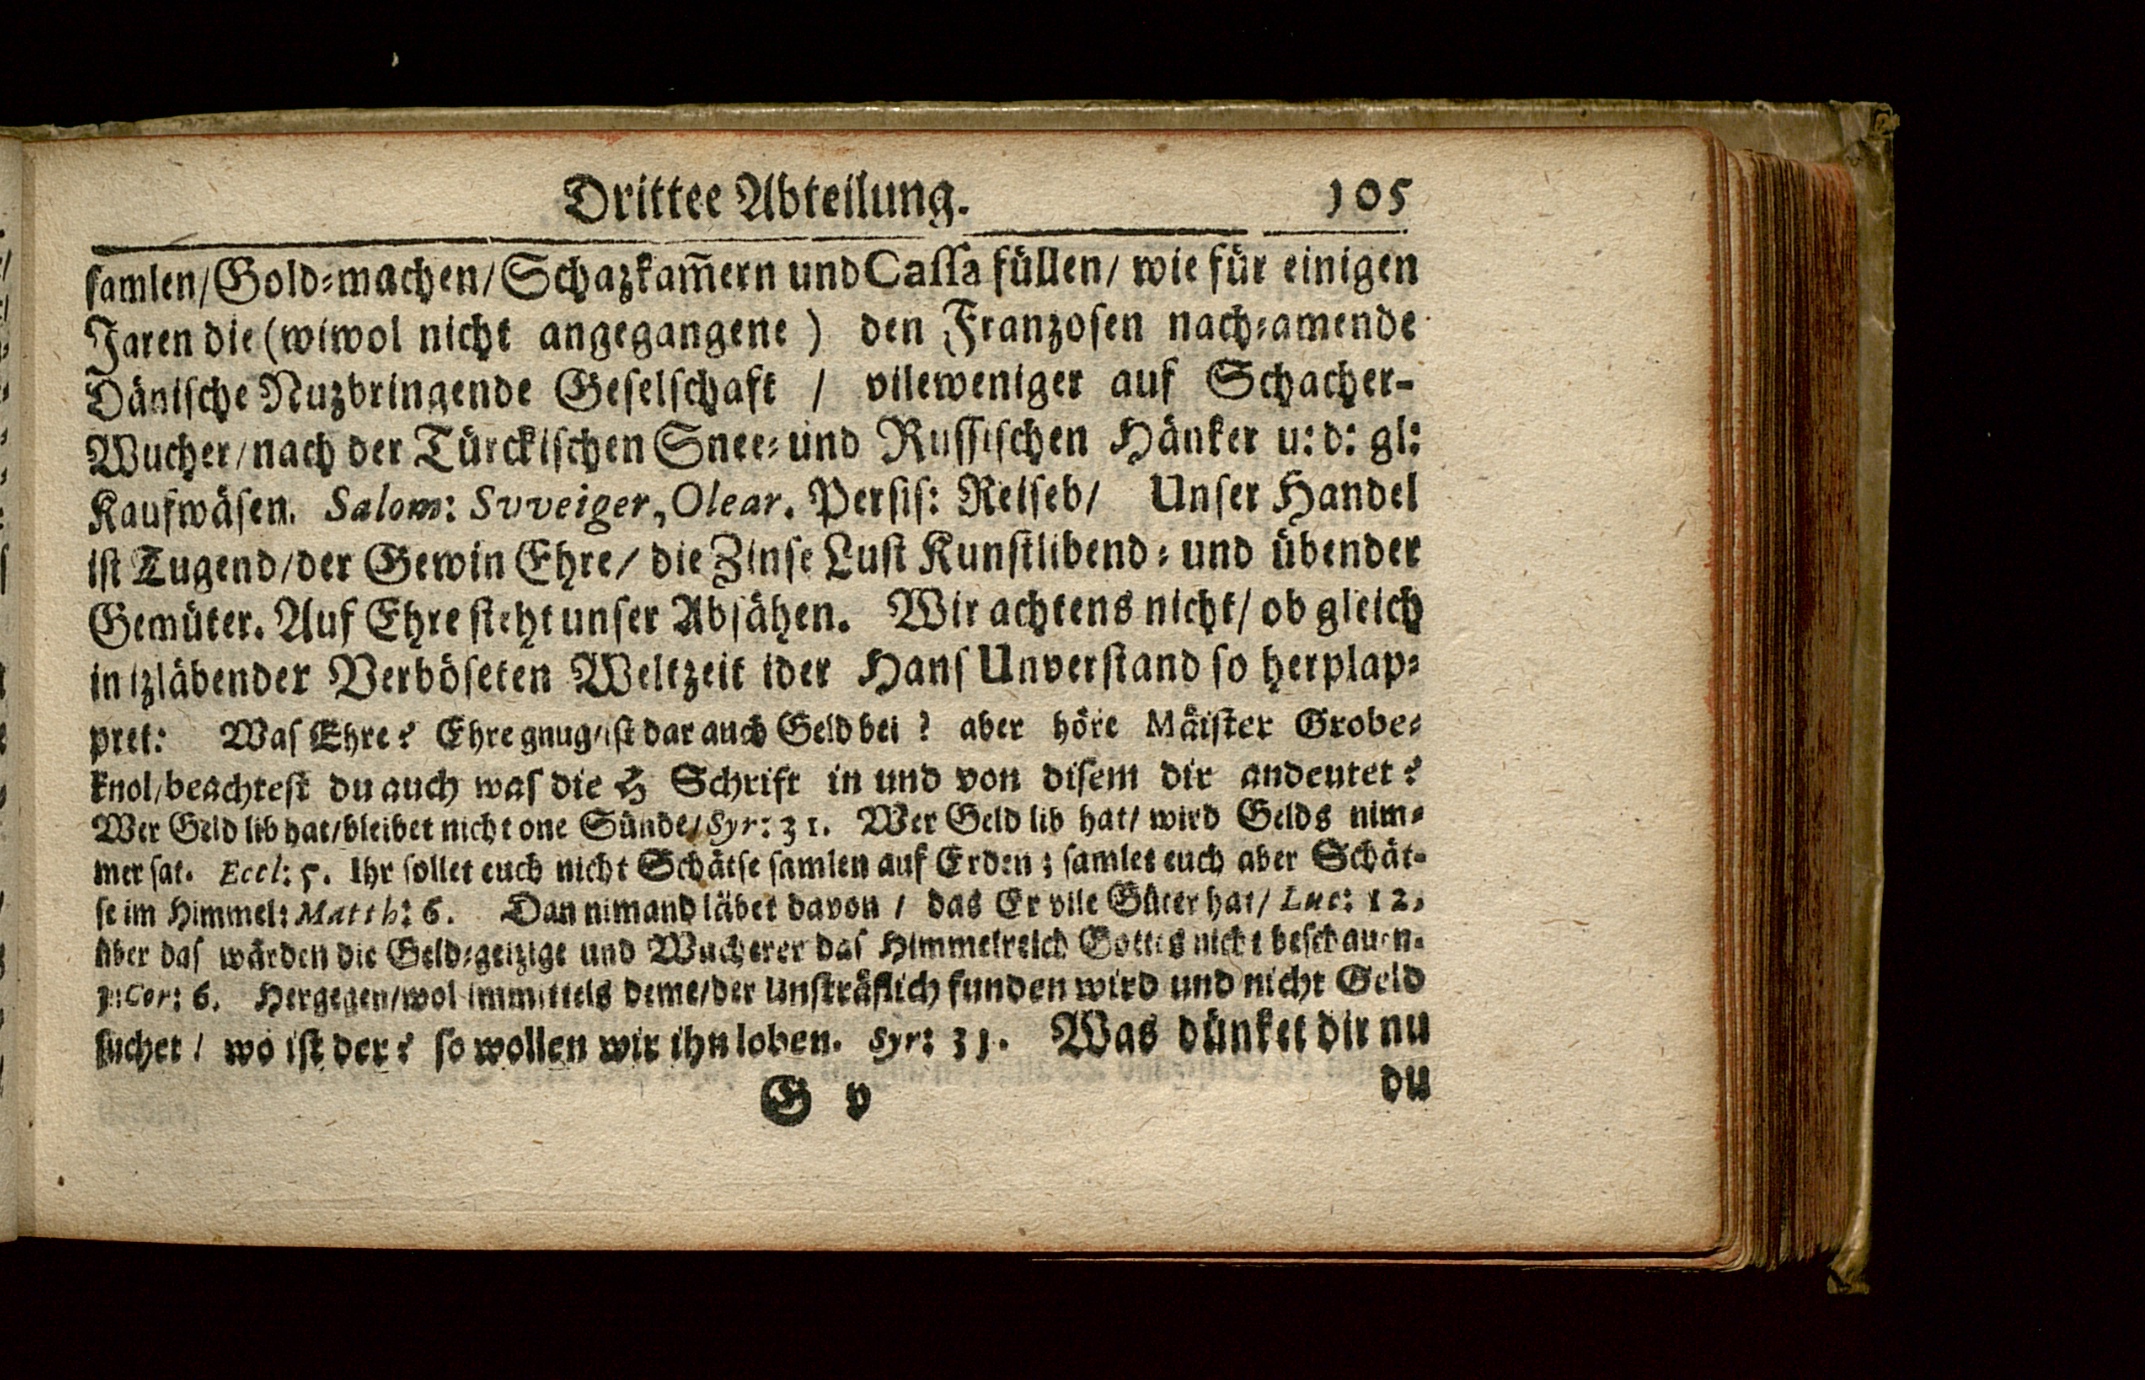 Drittee Abteilung. 105
samlen/Gold⸗machen/Schazkam̃ern und Cassa füllen/ wie für einigen
Jaren die (wiwol nicht angegangene) den Franzosen nach⸗amende
Dänische Nuzbringende Geselschaft / vileweniger auf Schacher-
Wucher/nach der Türckischen Snee⸗ und Russischen Hänker u: d: gl:
Kaufwäsen. Salom: Svveiger, Olear. Persis: Reiseb/ Unser Handel
ist Tugend/der Gewin Ehre/ die Zinse Lust Kunstlibend⸗ und übender
Gemüter. Auf Ehre steht unser Absähen. Wir achtens nicht/ ob gleich
in izläbender Verböseten Weltzeit ider Hans Unverstand so herplap⸗
pret: Was Ehre? Ehre gnug/ist dar auch Geld bei? aber höre Mäister Grobe⸗
knol/beachtest du auch was die H Schrift in und von disem dir andeutet?
Wer Geld lib hat/bleibet nicht one Sünde/Syr: 31. Wer Geld lib hat/ wird Gelds nim⸗
mer sat. Eccl: 5. Ihr sollet euch nicht Schätse samlen auf Erden; samlet euch aber Schät⸗
se im Himmel: Matth: 6. Dan nimand läbet davon / das Er vile Güter hat/ Luc: 12,
über das wärden die Geld⸗geizige und Wucherer das Himmelreich Gottes nicht beschauen.
1:Cor: 6. Hergegen/wol immittels deme/der Unsträflich funden wird und nicht Geld
suchet / wo ist der? so wollen wir ihn loben. Syr: 31. Was dünket dir nu
G v du